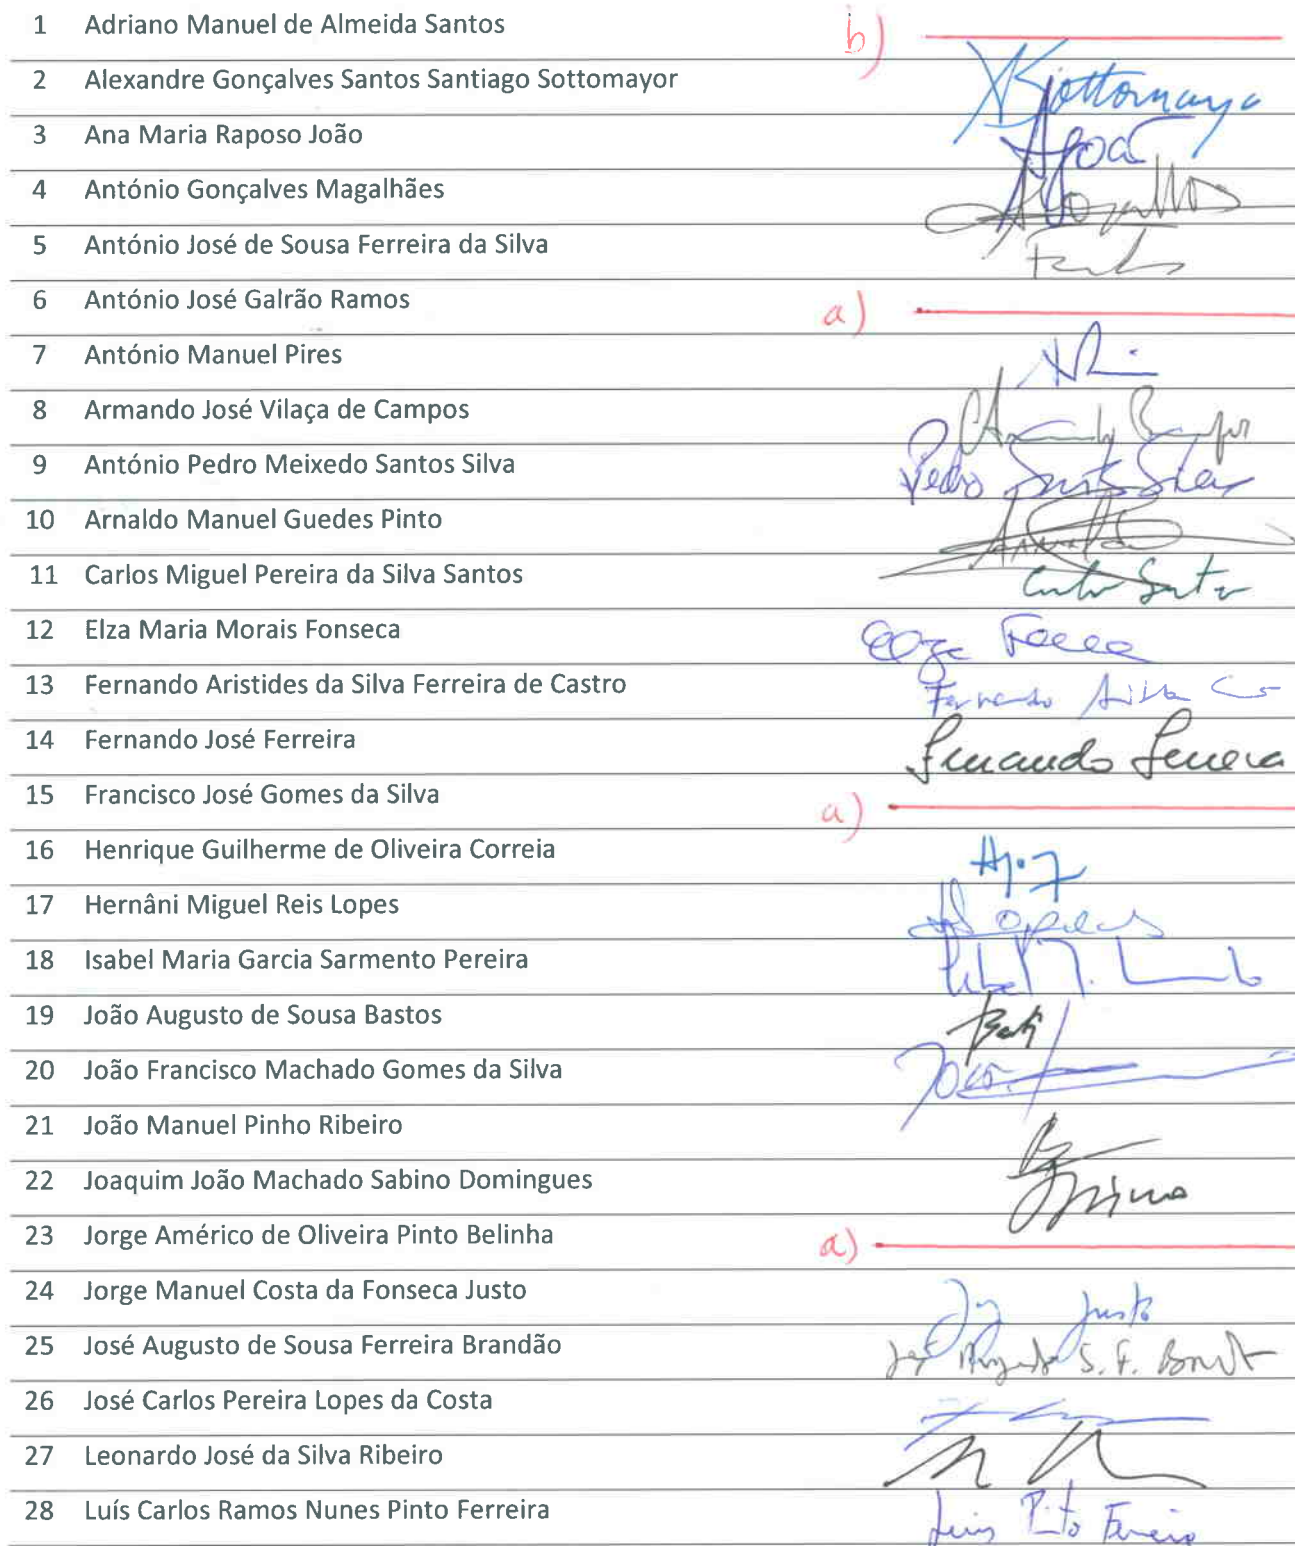 1 Adriano Manuel de Almeida Santos b)
2 Alexandre Gonçalves Santos Santiago Sottomayor Sottomayor
3 Ana Maria Raposo João
4 António Gonçalves Magalhães
5 António José de Sousa Ferreira da Silva
6 António José Galrão Ramos a)
7 António Manuel Pires
8 Armando José Vilaça de Campos
9 António Pedro Meixedo Santos Silva Pedro Santos Silva
10 Arnaldo Manuel Guedes Pinto
11 Carlos Miguel Pereira da Silva Santos
12 Elza Maria Morais Fonseca
13 Fernando Aristides da Silva Ferreira de Castro Fernando
14 Fernando José Ferreira Fernando Ferreira
15 Francisco José Gomes da Silva a)
16 Henrique Guilherme de Oliveira Correia
17 Hernâni Miguel Reis Lopes
18 Isabel Maria Garcia Sarmento Pereira
19 João Augusto de Sousa Bastos
20 João Francisco Machado Gomes da Silva
21 João Manuel Pinho Ribeiro
22 Joaquim João Machado Sabino Domingues
23 Jorge Américo de Oliveira Pinto Belinha a)
24 Jorge Manuel Costa da Fonseca Justo Justo
25 José Augusto de Sousa Ferreira Brandão S. F.
26 José Carlos Pereira Lopes da Costa
27 Leonardo José da Silva Ribeiro
28 Luís Carlos Ramos Nunes Pinto Ferreira Luis Pinto Ferreira